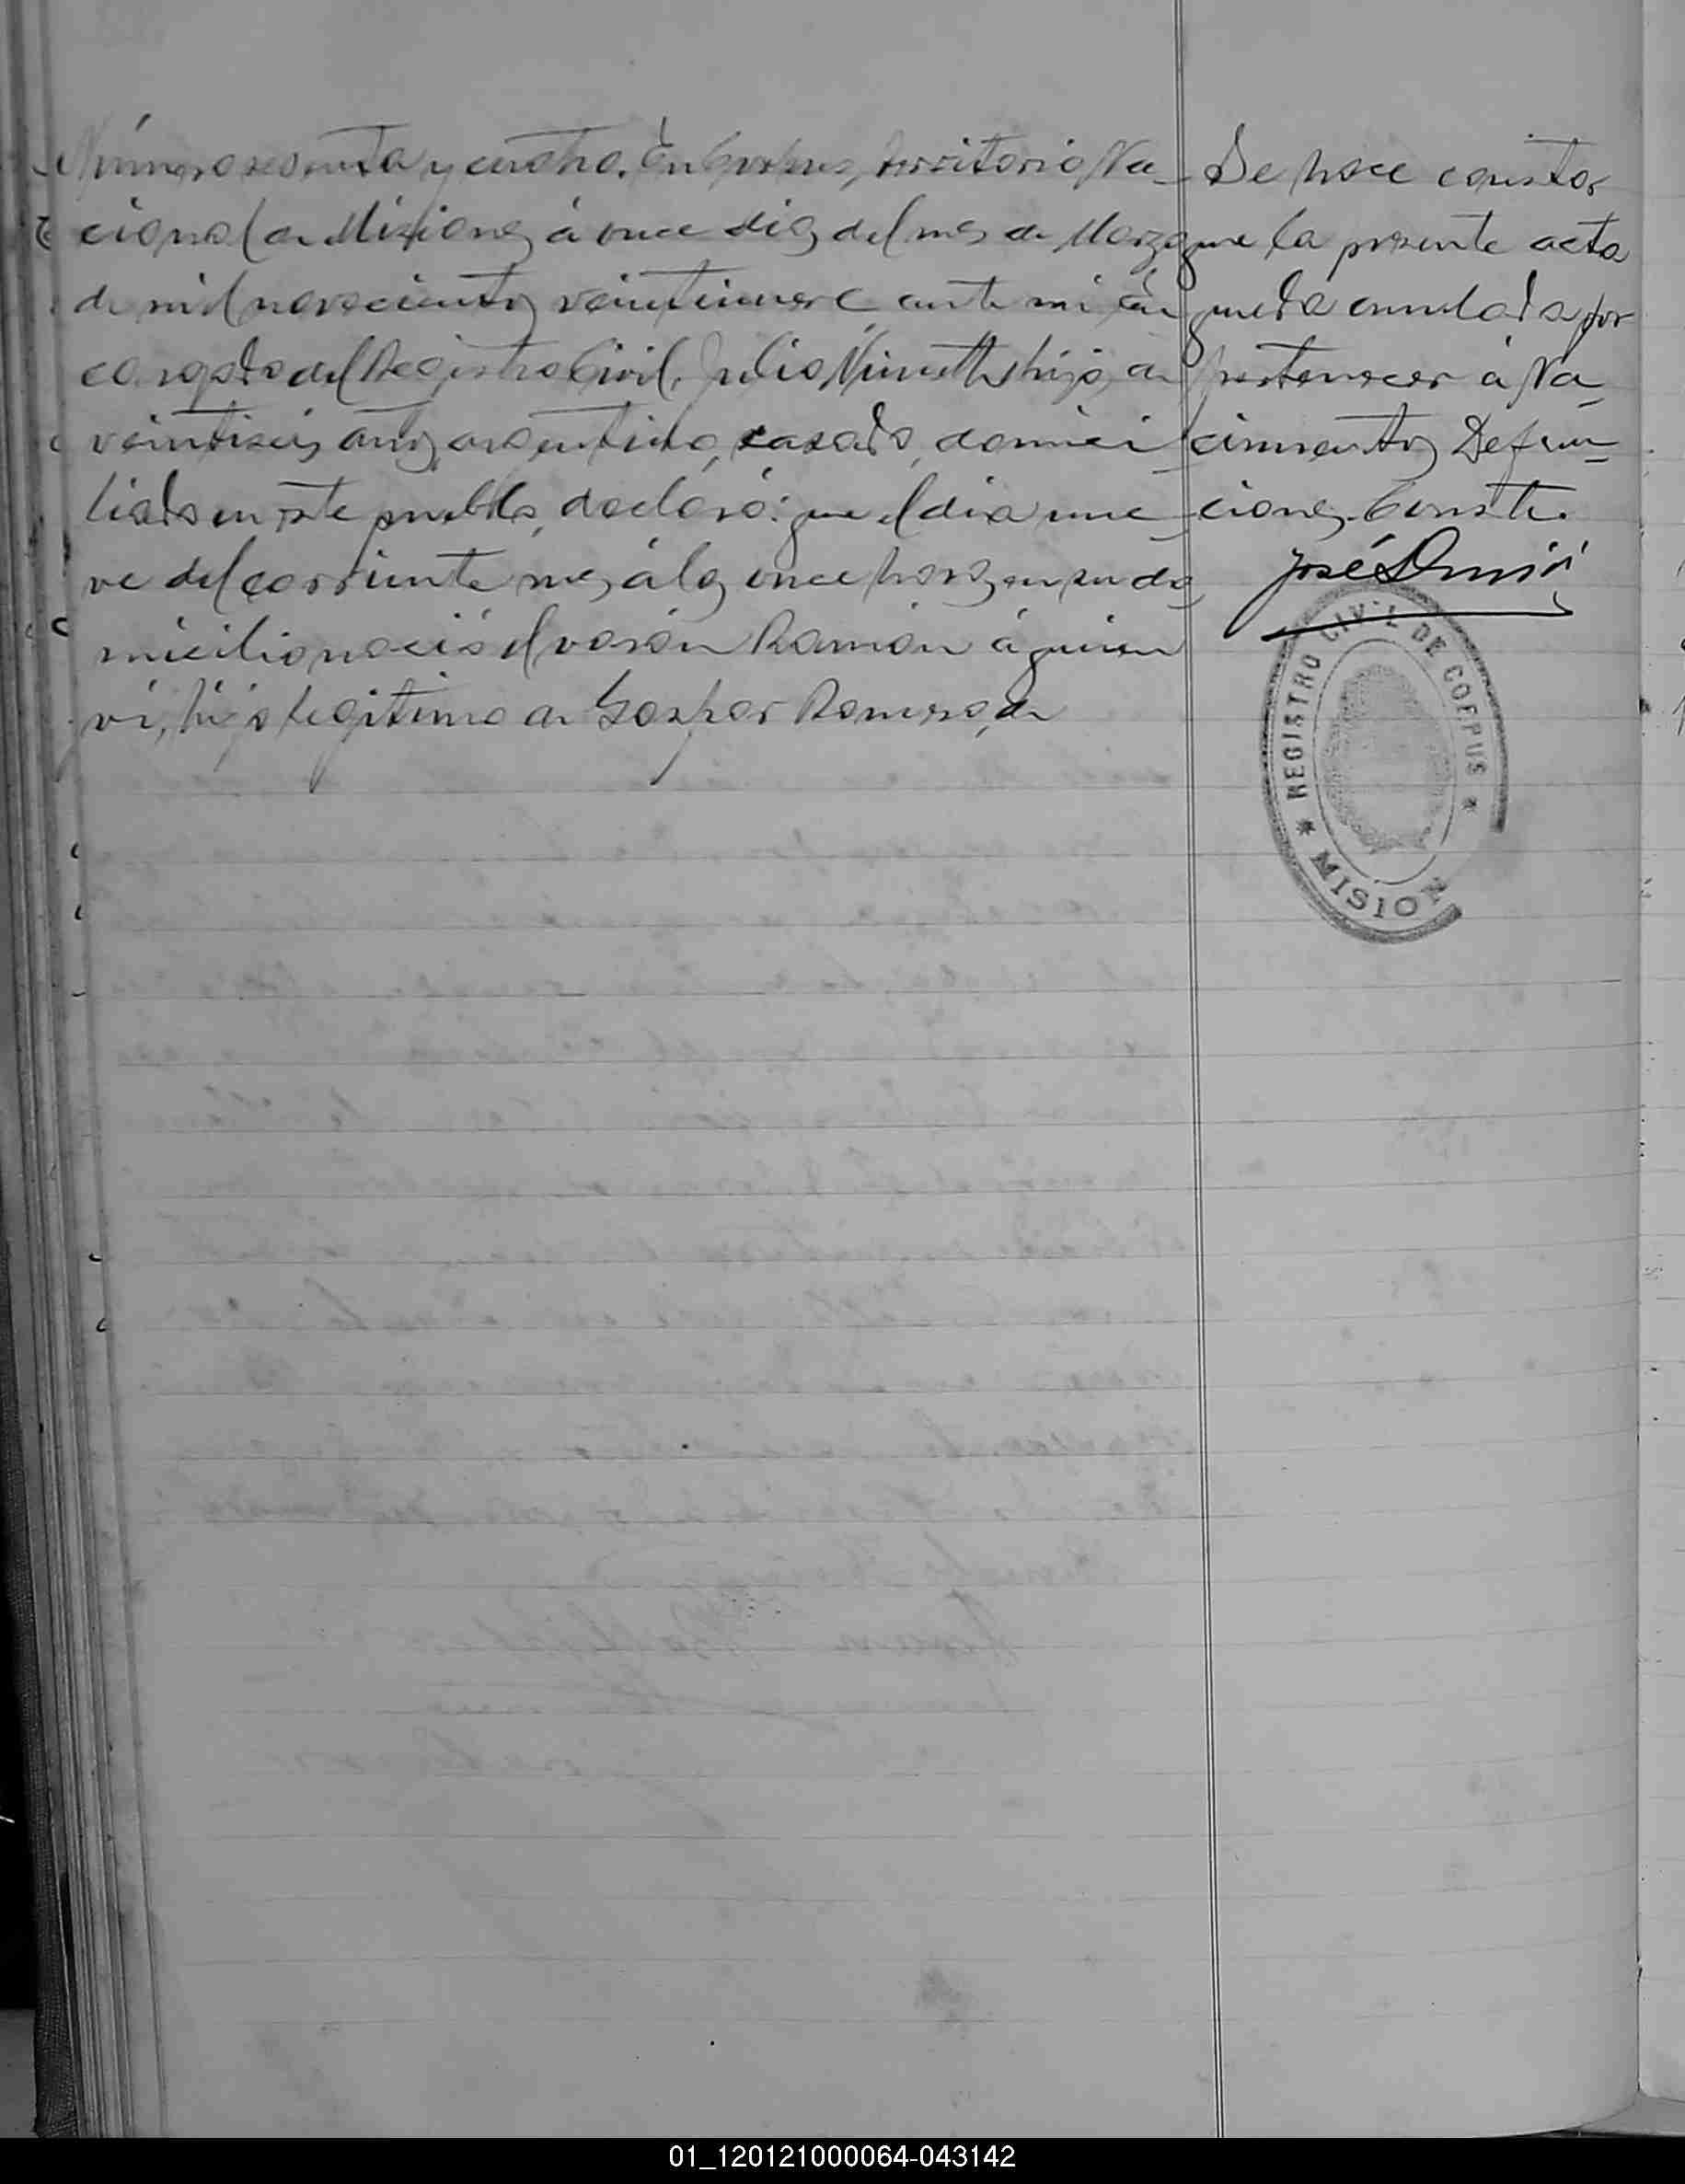 Número sesenta y cuatro. En Corpus, Territorio Na-
cional de Misiones á once dias del mes de Marzo
de mil novecientos veintinueve ante mi En
cargado del Registro Civil, Julio hijo, de
veintiseis años, argentino, casado, domici
liado en este pueblo, declaró: que el dia nue
ve del corriente mes, á las once horas, en su do
micilio nació el varón Ramón á quien
vi, hijo legitimo de Gaspar Romero, de
Se hace constar
que la presente acta
queda anulada por
pertenecer á Na
cimientos Defun-
ciones. Conste.
José
REGISTRO CIVIL DE COEPUS
MISION
01_120121000064-043142